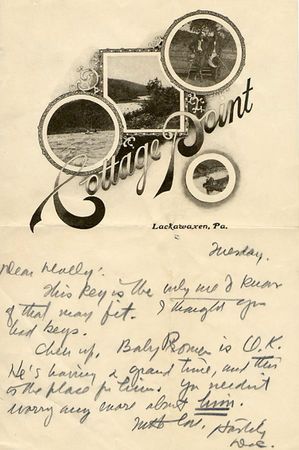 Cottage Point
Lackawaxen, Pa.
Tuesday.
Dear Wally:
This key is the only one I know
of that may fit. I thought you
had keys.
Cheer up, Baby Romer is O.K.
He's having a grand time, and this
is the place for him. You needn't
worry any more about him.
Doc.